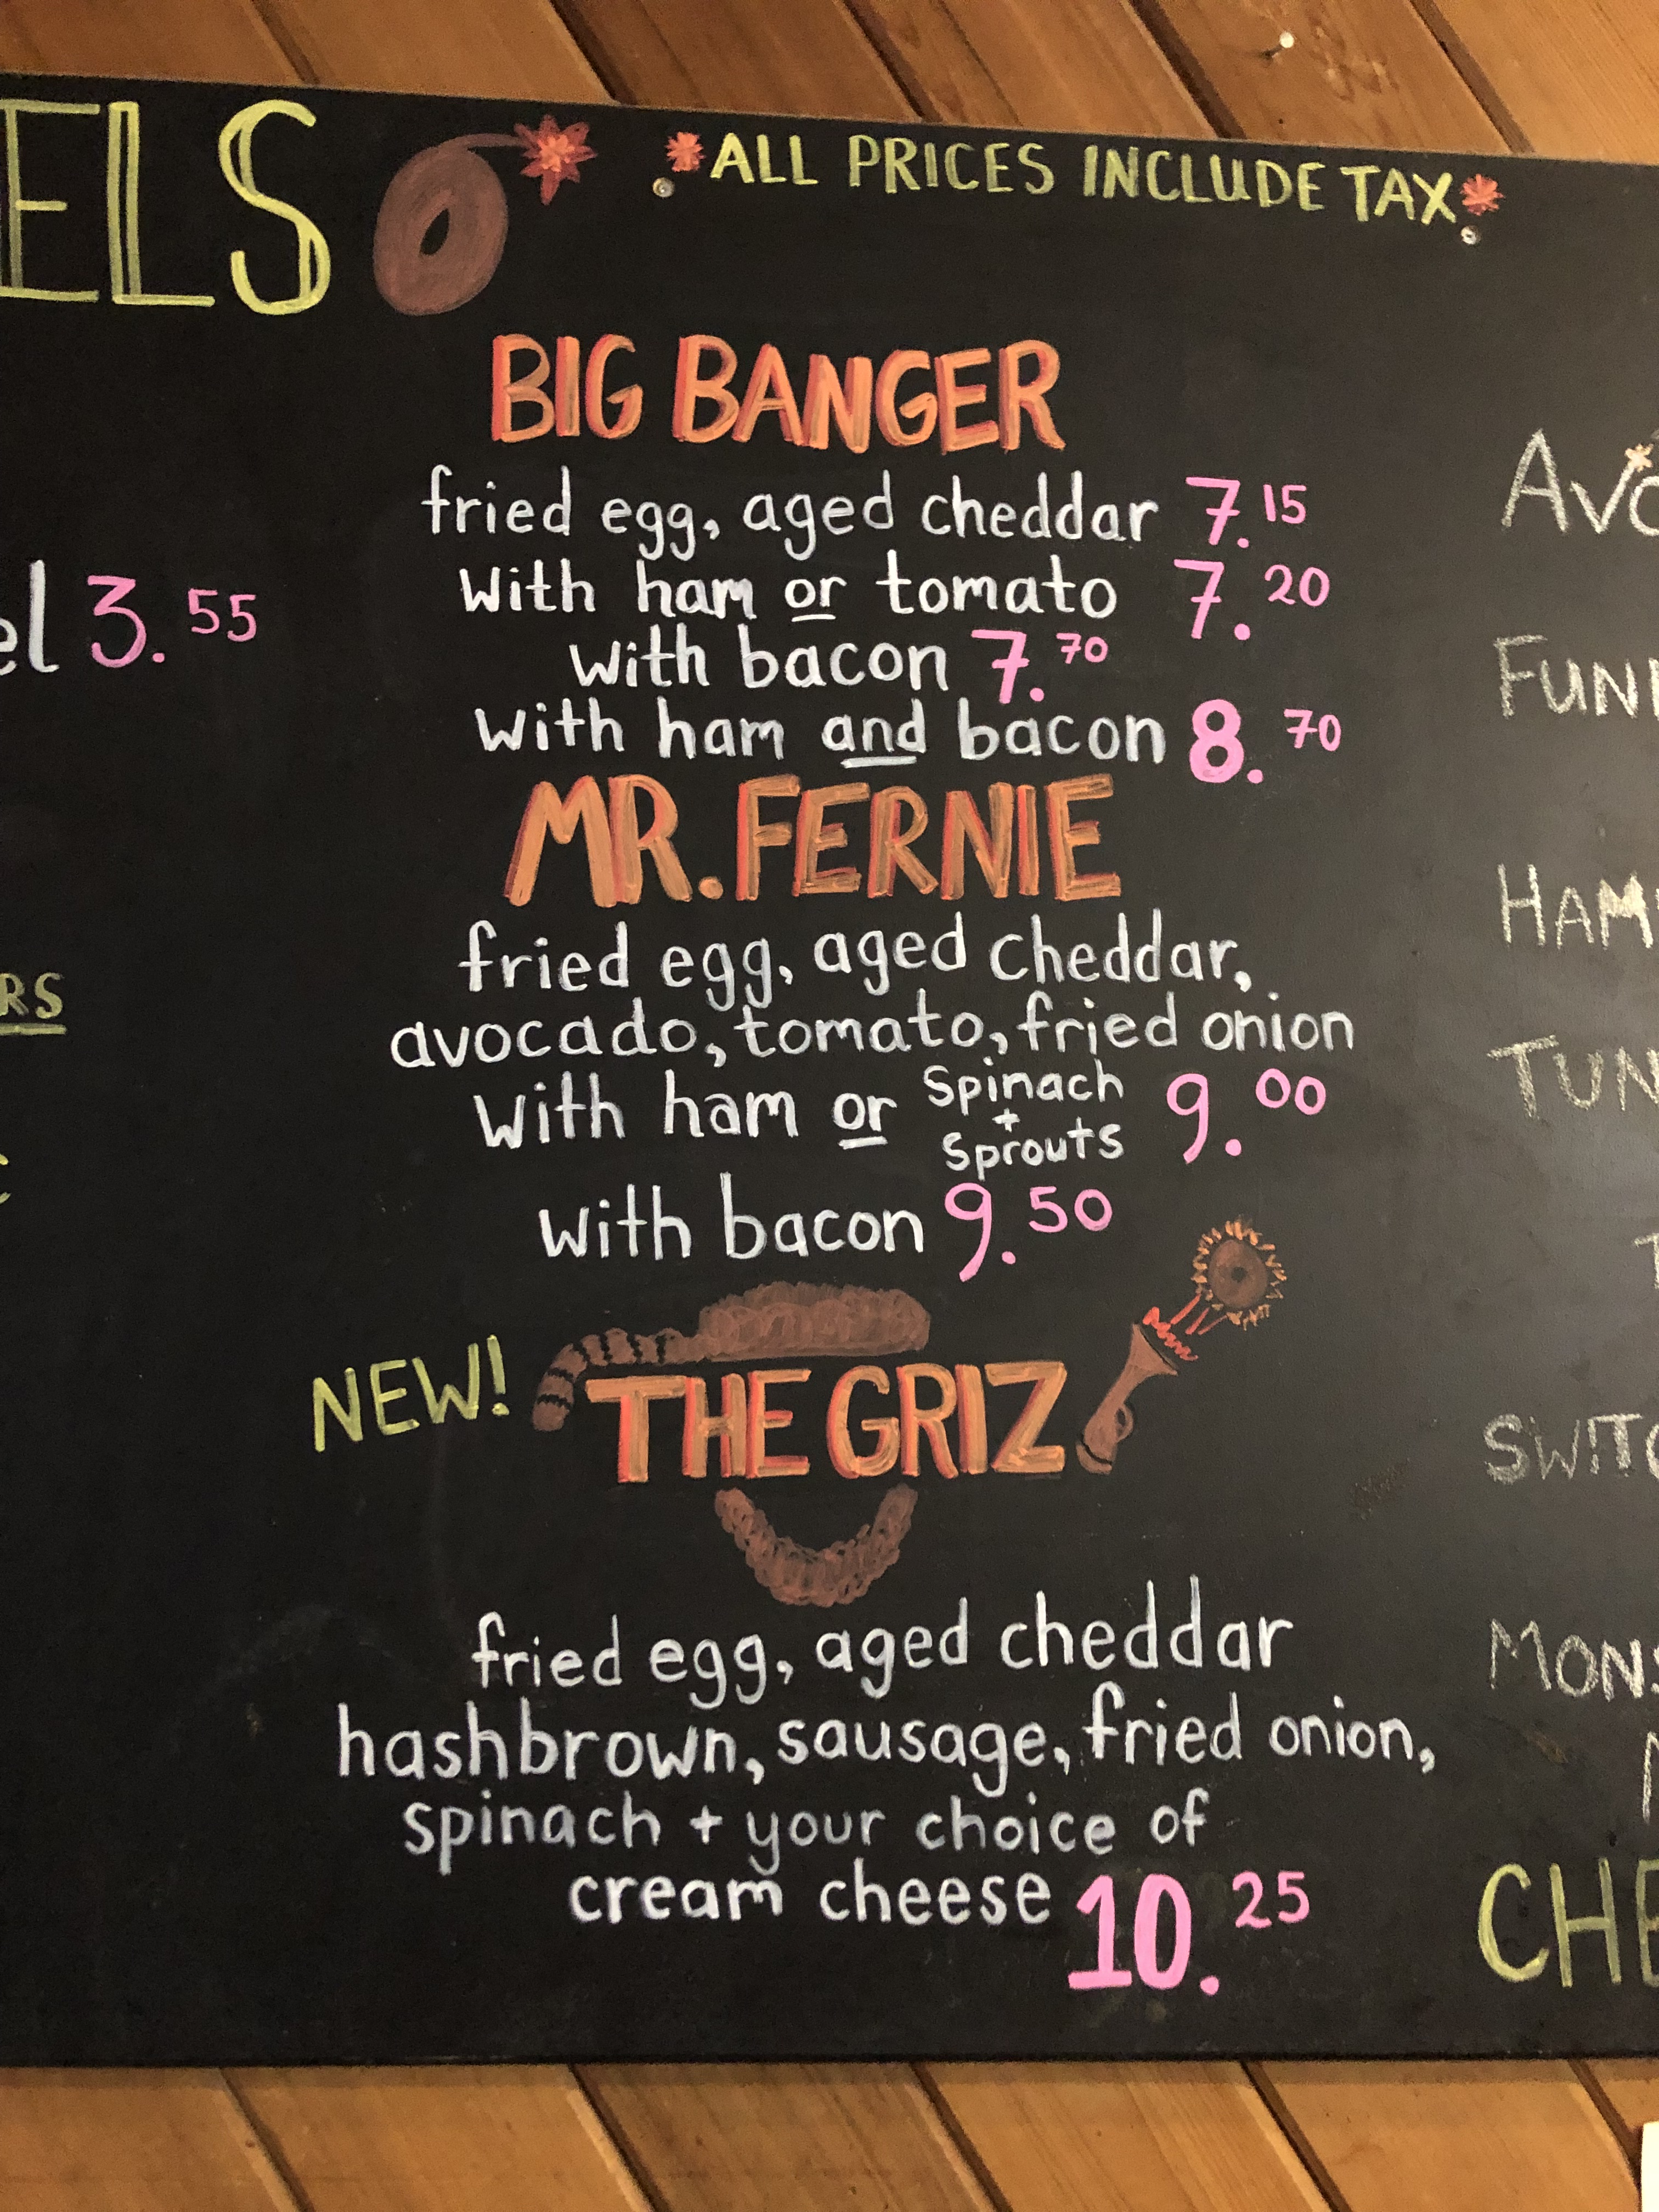 ELS
*ALL PRICES INCLUDE TAX*
BIG BANGER
fried egg, aged cheddar 7.15
with ham or tomato 7.20
with bacon 7.70
with ham and bacon 8.70
MR. FERNIE
fried egg, aged cheddar,
avocado, tomato, fried onion
with ham or Spinach + Sprouts 9.00
with bacon 9.50
NEW! THE GRIZ
fried egg, aged cheddar
hashbrown, sausage, fried onion,
spinach + your choice of
cream cheese 10.25
el 3.55
RS
AVO
FUN
HAM
TUN
SWITC
MONS
CHE